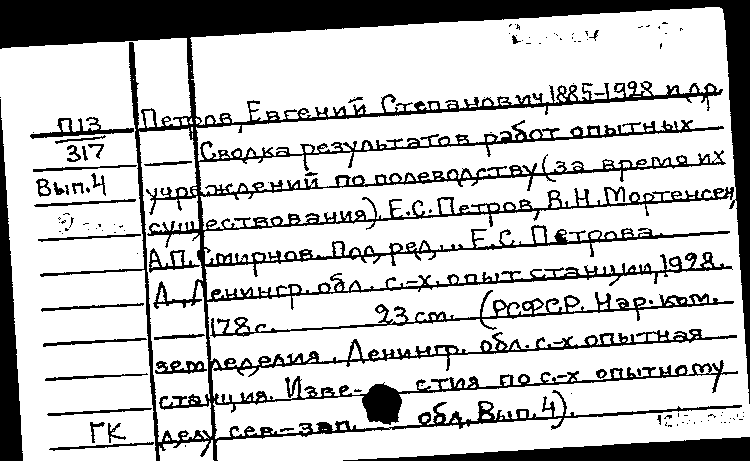 П13
317
Вып.4
Петров, Евгений Степанович, 1885-1928 и др.
Сводка результатов работ опытных
учреждений по полеводству (за время их
существования). Е.С. Петров, В.Н. Мортенсен,
А.П. Смирнов. Под ред... Е.С. Петрова.
Л., Ленингр. обл. с.-х. опыт. станции, 1928.
178 с. 23 см. (РСФСР. Нар. ком.
земледелия. Ленингр. обл. с.-х. опытная
станция. Изве- стия по с.-х опытному
делу сев.-зап. обл. Вып. 4).
ГК